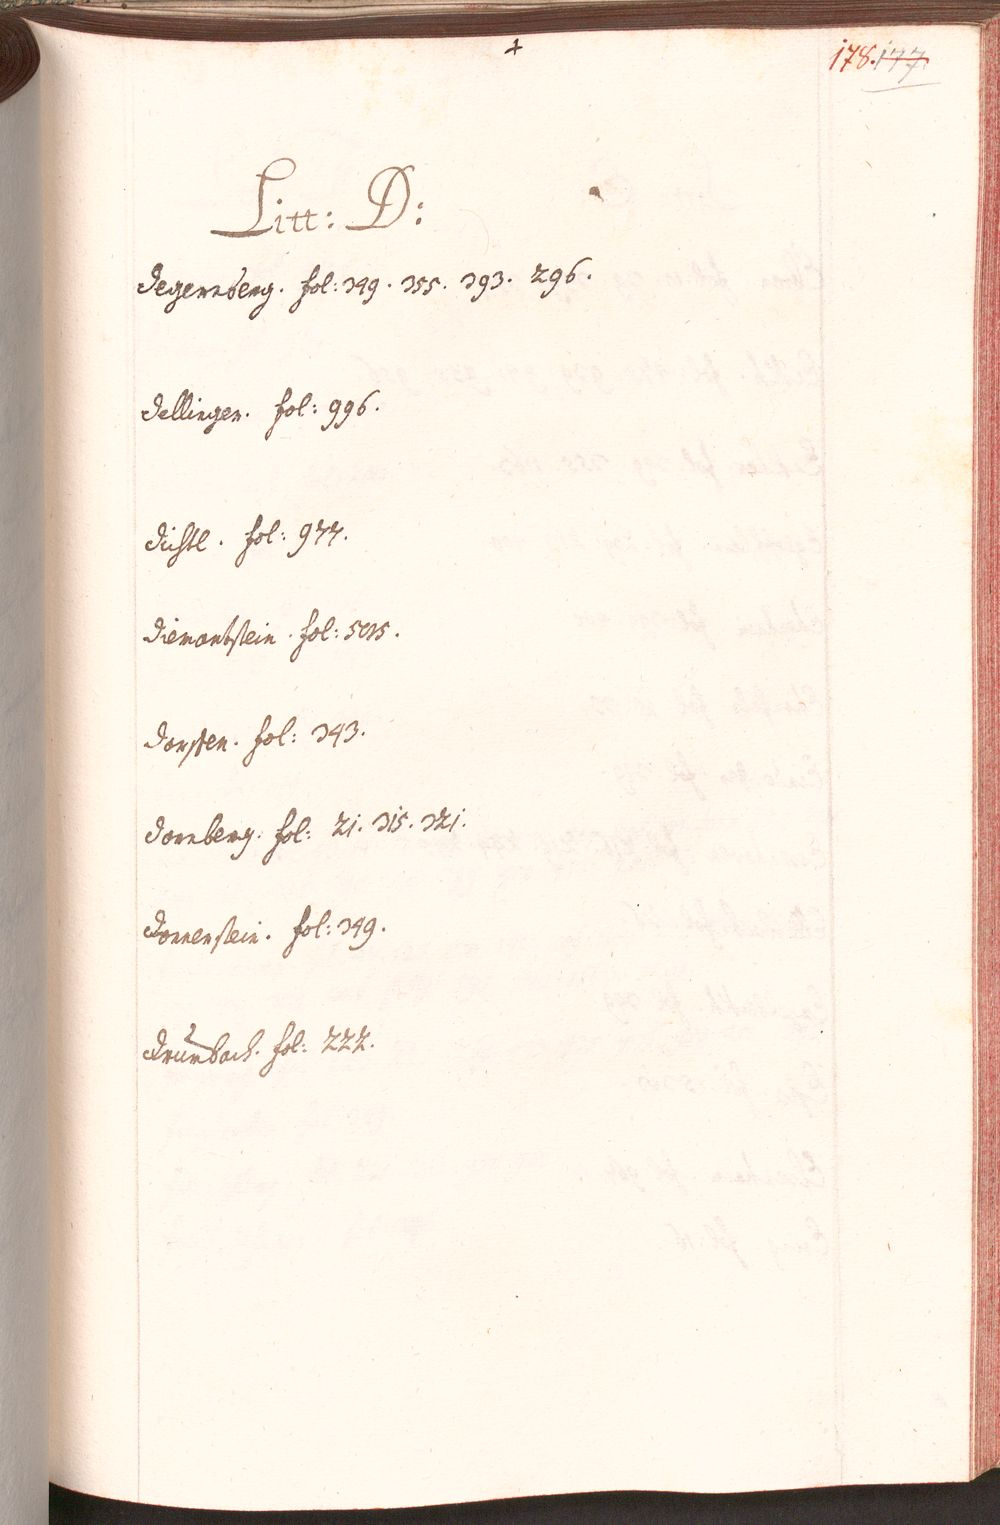 4
178. 177.
Litt: D:
Degernberg. fol: 349. 355. 393. 296.
Dellinger. fol: 996.
Dichtl. fol: 977.
Diemantstein. fol: 505.
Dorffen. fol: 343.
Dornberg. fol: 21. 315. 321.
Dornenstein. fol: 349.
Drumbach. fol: 222.